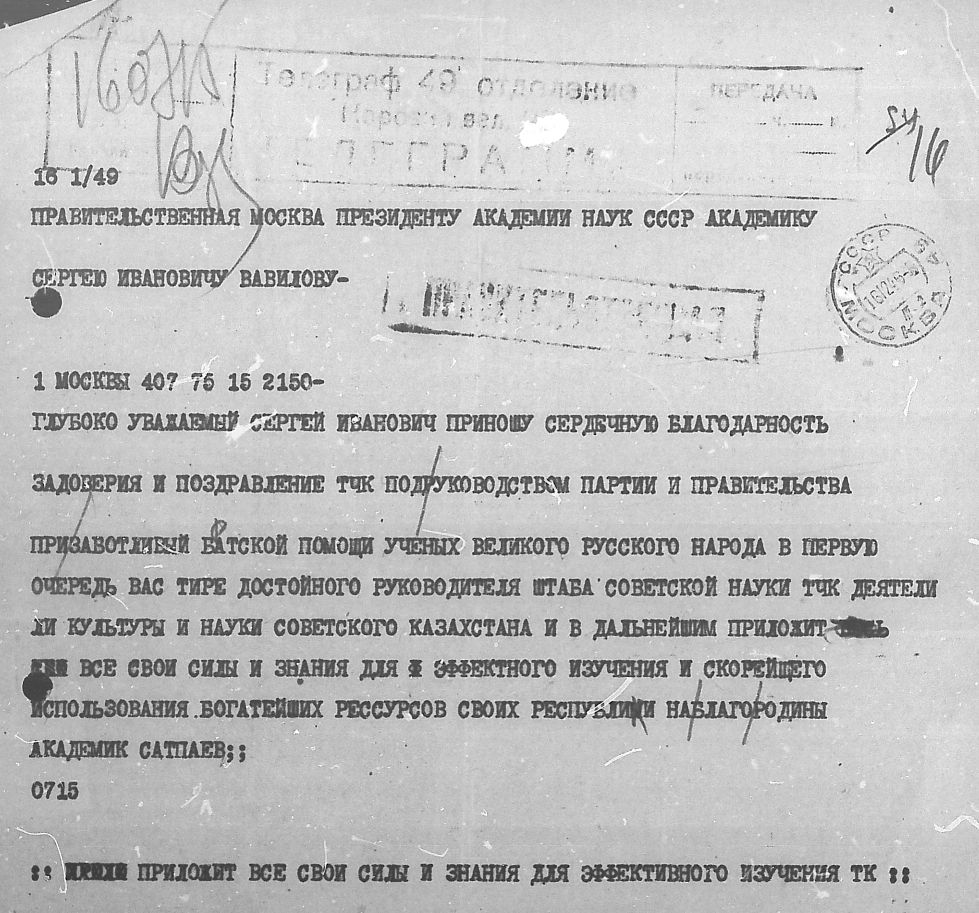 Телеграф 49 отделение
ПЕРЕДАЧА
16 1/49
ПРАВИТЕЛЬСТВЕННАЯ МОСКВА ПРЕЗИДЕНТУ АКАДЕМИИ НАУК СССР АКАДЕМИКУ
СЕРГЕЮ ИВАНОВИЧУ ВАВИЛОВУ-
СССР
МОСКВА
1 МОСКВЫ 407 75 15 2150-
ГЛУБОКО УВАЖАЕМЫЙ СЕРГЕЙ ИВАНОВИЧ ПРИНОШУ СЕРДЕЧНУЮ БЛАГОДАРНОСТЬ
ЗАДОВЕРИЯ И ПОЗДРАВЛЕНИЕ ТЧК ПОДРУКОВОДСТВОМ ПАРТИИ И ПРАВИТЕЛЬСТВА
ПРИЗАБОТЛИВЫЙ БАТСКОЙ ПОМОЩИ УЧЕНЫХ ВЕЛИКОГО РУССКОГО НАРОДА В ПЕРВУЮ
ОЧЕРЕДЬ ВАС ТИРЕ ДОСТОЙНОГО РУКОВОДИТЕЛЯ ШТАБА СОВЕТСКОЙ НАУКИ ТЧК ДЕЯТЕЛИ
ЛИ КУЛЬТУРЫ И НАУКИ СОВЕТСКОГО КАЗАХСТАНА И В ДАЛЬНЕЙШИМ ПРИЛОЖИТ
ВСЕ СВОИ СИЛЫ И ЗНАНИЯ ДЛЯ ЭФФЕКТНОГО ИЗУЧЕНИЯ И СКОРЕЙЩЕГО
ИСПОЛЬЗОВАНИЯ БОГАТЕЙШИХ РЕССУРСОВ СВОИХ РЕСПУБЛИКИ НАБЛАГОРОДИНЫ
АКАДЕМИК САТПАЕВ;;
0715
:: ПРИЛОЖИТ ВСЕ СВОИ СИЛЫ И ЗНАНИЯ ДЛЯ ЭФФЕКТИВНОГО ИЗУЧЕНИЯ ТК ::